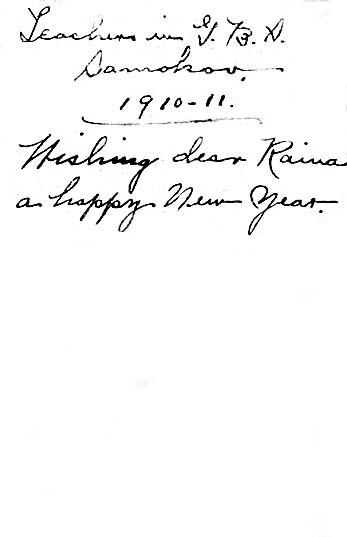 Teachers in G. B. S.
Samokov.
1910-11.
Wishing dear Raina
a happy New Year.